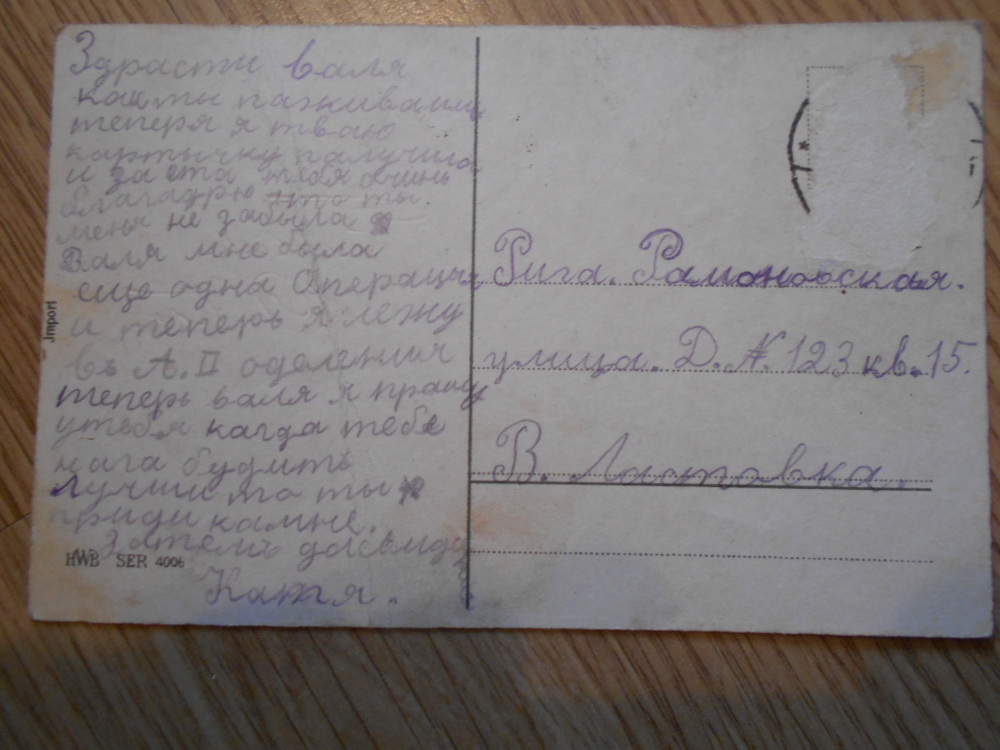 Здрасти Валя
как ты паживаиш
теперя я тваю
картычку палучила
и за ета тебя очинь
благадрю што ты
меня не забыла
Валя мне была
еще одна Операция
и теперь я лежу
въ А. II оделении
теперь валя я прашу
утебя кагда тебе
нага будить
лучши то ты
приди камне.
Затемъ досвида
Катя.
Jmport
HWB SER 4006
Рига. Рамоновская.
улица. Д. № 123 кв. 15.
В.